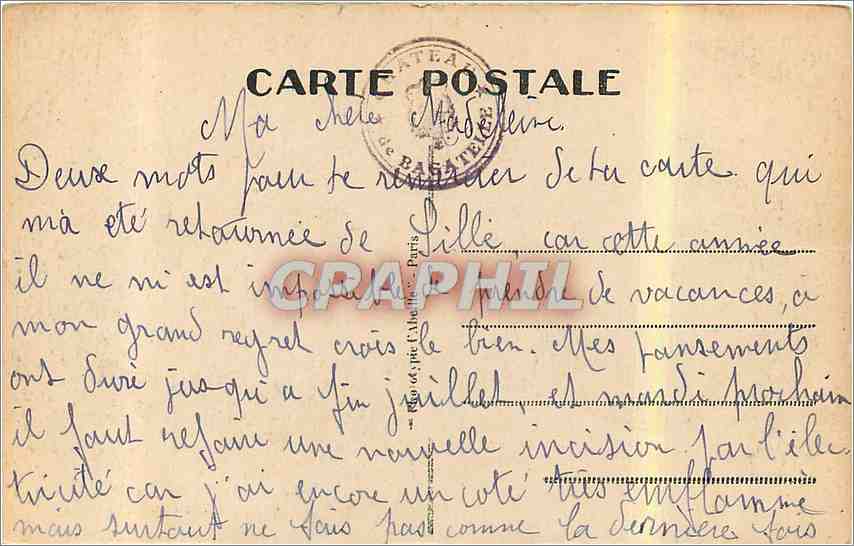 CHATEAU
de BAGATELLE
CARTE POSTALE
Ma chère Madeleine.
Deux mots pour te remercier de ta carte qui
m'a été retournée de Lille, car cette année
il ne m'est impossible de prendre de vacances, à
mon grand regret crois le bien. Mes pansements
ont duré jusqu'à fin juillet, et mardi prochain
il faut refaire une nouvelle incision par l'élec-
tricité car j'ai encore un coté très emflammé
mais surtout ne fais pas comme la dernière fois
Phototypie l'Abeille" - Paris
CPAPHIL